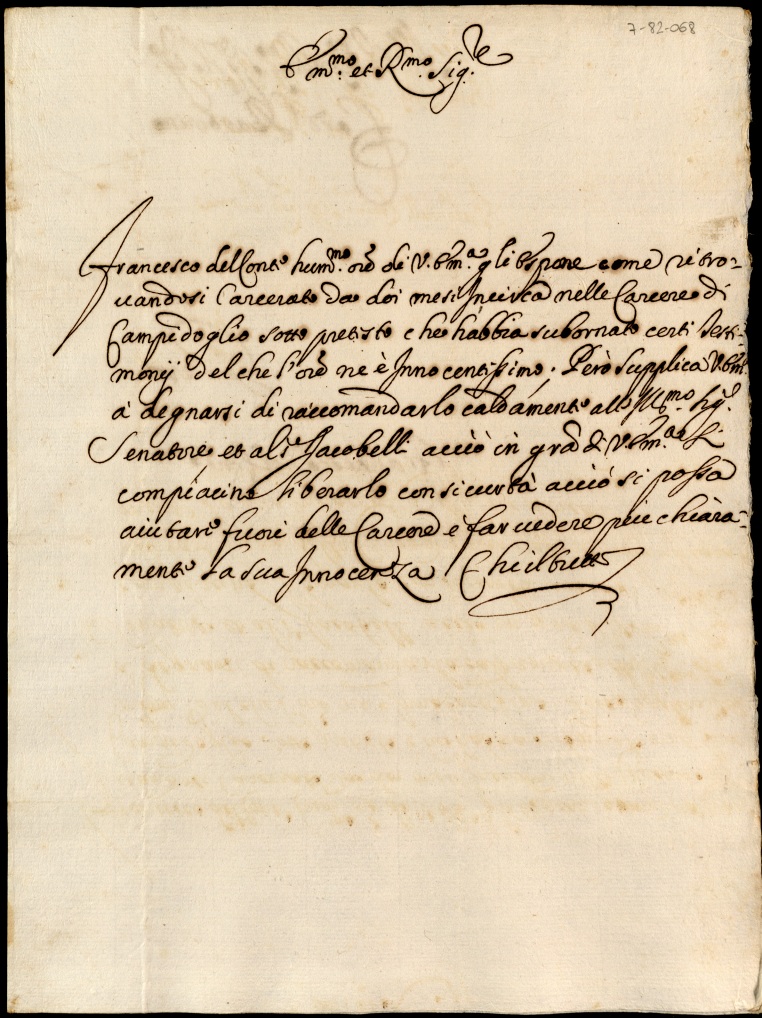 7-82-068
Em.mo et R.mo Sig.re
Francesco del Conte hum.mo ore di V. Em.a gli Espone come ritro-
uandosi Carcerato da doi mesi Incirca nelle Carcere di
Campidoglio sotto pretesto che habbia subornato certi Testi-
monij del che l'ore ne è Innocentissimo. Però supplica V. Em.a
à degnarsi di raccomandarlo caldamente all Ill.mo Sig.r
Senatore et al Sr Jacobelli acciò in gra di V. Em.a si
compiacino liberarlo con sicurtà acciò si possa
aiutare fuori delle Carcere e far uedere più chiara-
mente la sua Innocenza Che il tutto